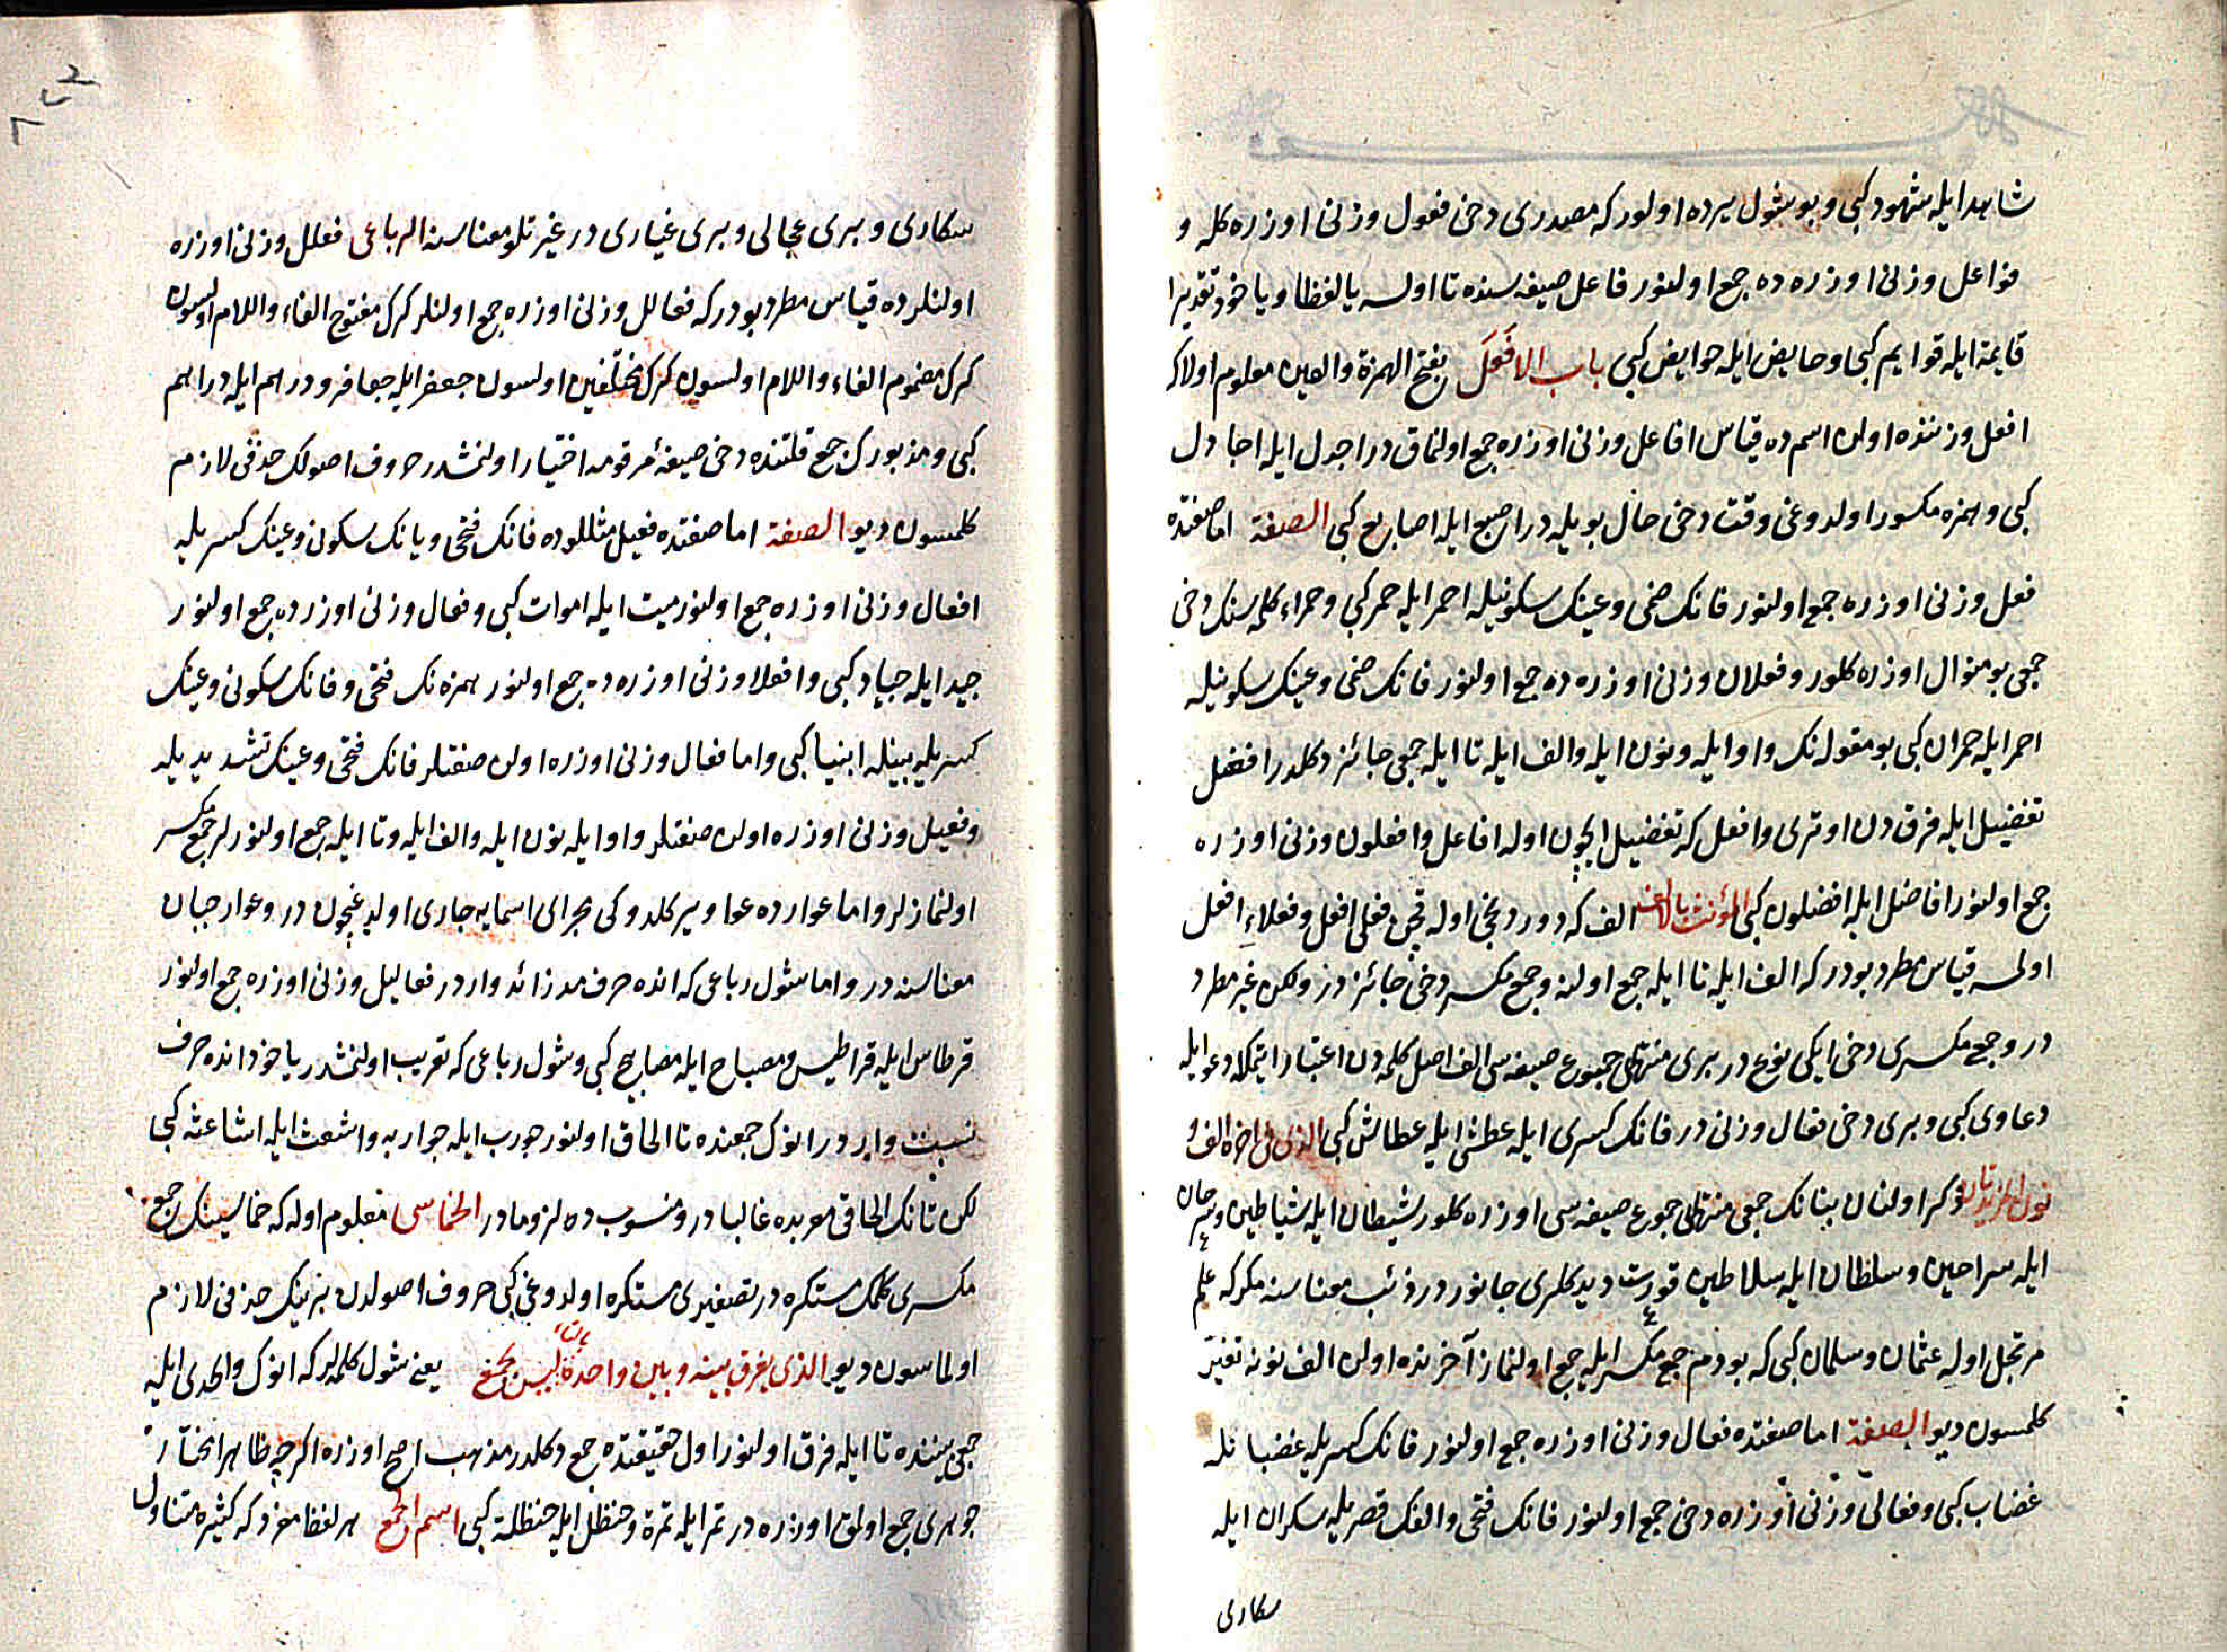 شاهد ایله شهود كبی و بو شول یرده اولور كه مصدری دخی فعول وزنی اوزره كله و
فواعل وزنی اوزره ده جمع اولنور فاعل صیغه سنده تا اولسه یا لفظا و یاخود تقدیرا
قایمة ایله قوایم كبی و حایض ایله حوایض كبی باب الافعل بفتح الهمزة والعین معلوم اولا كه
افعل وزننده اولن اسم ده قیاس افاعل وزنی اوزره جمع اولنماق در اجدل ایله اجادل
كبی و همزه مكسور اولدوغی وقت دخی حال بویله در اصبع ایله اصابع كبی الصفة اما صفتده
فعل وزنی اوزره جمع اولنور فانك ضمی و عینك سكونیله احمر ایله حمر كبی و حمراء كلمه سنك دخی
جمعی بو منوال اوزره كلور و فعلان وزنی اوزره ده جمع اولنور فانك ضمی و عینك سكونیله
احمر ایله حمران كبی بو مقوله نك واو ایله و نون ایله و الف ایله تا ایله جمعی جائز دكلدر افعل
تفضیل ایله فرق دن اوتری و افعل كه تفضیل ایچون اوله افاعل و افعلون وزنی اوزره
جمع اولنور افاضل ایله افضلون كبی المؤنث بالالف الف كه دوردنجی اوله فعلی افعل و فعلاء افعل
اولسه قیاس مطرد بودر كه الف ایله تا ایله جمع اولنه و جمع مكسر دخی جائز در ولكن غیر مطرد
در و جمع مكسری دخی ایكی نوع در بری منتهی جموع صیغه سی الف اصل كلمه دن اعتبار ایتمكله دعوا ایله
دعاوی كبی و بری دخی فعال وزنی در فانك كسری ایله عطشی ایله عطاش كبی الذی فی اخره الف و
نون مزیدتان ذكر اولنان بنانك جمعی منتهی جموع صیغه سی اوزره كلور شیطان ایله شیاطین و سرحان
ایله سراحین و سلطان ایله سلاطین قورت دیدكلری جانور در ذئب معناسنه مكر كه علم
مرتجل اوله عثمان و سلمان كبی كه بو دم جمع مكسر ایله جمع اولنماز آخرنده اولن الف نونه تغیر
كلمسون دیو الصفة اما صفتده فعال وزنی اوزره جمع اولنور فانك كسریله غضبانله
غضاب كبی و فعالی وزنی اوزره دخی جمع اولنور فانك فتحی و الفك قصریله سكران ایله
سكاری
سكاری و بری عجالی و بری غیاری در غیرتلو معناسنه الرباعی فعلل وزنی اوزره
اولنلرده قیاس مطرد بودر كه فعالل وزنی اوزره جمع اولنلر كرك مفتوح الفاء واللام اولسون
كرك مضموم الفاء واللام اولسون كرك مختلفین اولسون جعفر ایله جعافر و درهم ایله دراهم
كبی و مذبورك جمع قلتنده دخی صیغهٔ مرقومه اختیار اولنمشدر حروف اصولك حذفی لازم
كلمسون دیو الصفة اما صفتده فعیل مثللوده فانك فتحی و یانك سكونی و عینك كسریله
افعال وزنی اوزره جمع اولنور میت ایله اموات كبی و فعال وزنی اوزره ده جمع اولنور
جید ایله جیاد كبی و افعلا وزنی اوزره ده جمع اولنور همزه نك فتحی و فانك سكونی و عینك
كسریله بینله ابنیا كبی و اما فعال وزنی اوزره اولن صفتلر فانك فتحی و عینك تشدیدیله
و فعیل وزنی اوزره اولن صفتلر واو ایله نون ایله و الف ایله و تا ایله جمع اولنورلر جمع مكسر
اولنمازلر و اما عوارده عواویر كلدوكی مجرای اسمایه جاری اولدیغیچون در و عوار جبان
معناسنه در و اما شول رباعی كه انده حرف مد زائد وار در فعالیل وزنی اوزره جمع اولنور
قرطاس ایله قراطیس و مصباح ایله مصابیح كبی و شول رباعی كه تعریب اولنمشدر یاخود انده حرف
نسبت واردر انوك جمعنده تا الحاق اولنور جورب ایله جواربه و اشعث ایله اشاعثه كبی
لكن تانك الحاقی معربده غالبا در و منسوب ده لزوما در الخماسی معلوم اوله كه خماسینك جمع
مكسری كلمك مستكره در تصغیری مستكره اولدوغی كبی حروف اصولدن برینك حذفی لازم
اولماسون دیو الذی یفرق بینه و بین واحده بالتاء لیس بجمع یعنی شول كلمه لر كه انوك واحدی ایله
جمعی بیننده تا ایله فرق اولنور اول حقیقتده جمع دكلدر مذهب اصح اوزره اكرچه ظاهرا مختار
جوهری جمع اولمق اوزره در تمر ایله تمرة و حنظل ایله حنظلة كبی اسم الجمع هر لفظ مفرد كه كثیره متناول